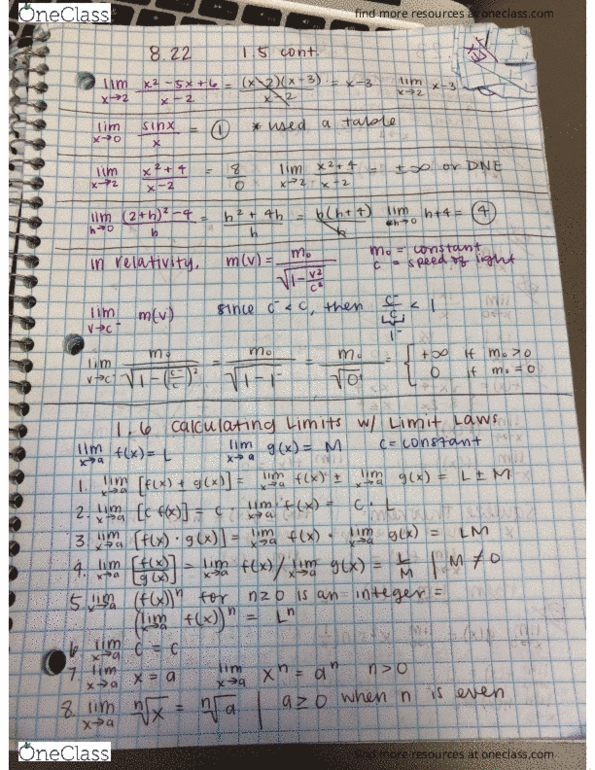 OneClass
find more resources at oneclass.com
8.22 1.5 cont.
lim x→2 x² - 5x + 6 / x - 2 = (x-2)(x-3) / x-2 = x-3 lim x→2 x-3
lim x→0 sinx / x = 1 * used a table
lim x→2 x² + 4 / x - 2 = 8 / 0 lim x→2 x² + 4 / x - 2 = ±∞ or DNE
lim h→0 (2+h)² - 4 / h = h² + 4h / h = h(h+4) / h lim h→0 h+4 = 4
in relativity, m(v) = m₀ / √1 - v²/c² m₀ = constant
c = speed of light
lim v→c⁻ m(v) since c⁻ < c, then c⁻/c < 1
1⁻
lim v→c⁻ m₀ / √1 - (c⁻/c)² = m₀ / √1 - 1⁻ = m₀ / √0⁺ = { +∞ if m₀ > 0
0 if m₀ = 0
1.6 Calculating Limits w/ Limit Laws
lim x→a f(x) = L lim x→a g(x) = M c = constant
1. lim x→a [f(x) + g(x)] = lim x→a f(x) ± lim x→a g(x) = L ± M
2. lim x→a [c f(x)] = c · lim x→a f(x) = c · L
3. lim x→a [f(x) · g(x)] = lim x→a f(x) · lim x→a g(x) = LM
4. lim x→a [f(x) / g(x)] = lim x→a f(x) / lim x→a g(x) = L / M | M ≠ 0
5. lim x→a (f(x))ⁿ for n≥0 is an integer =
(lim x→a f(x))ⁿ = Lⁿ
6. lim x→a c = c
7. lim x→a x = a lim x→a xⁿ = aⁿ n>0
8. lim x→a ⁿ√x = ⁿ√a | a≥0 when n is even
OneClass
find more resources at oneclass.com